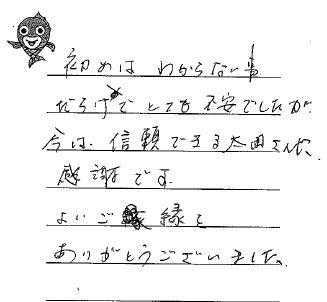 初めは わからない事
だらけで とても 不安でしたが、
今は、信頼できる太田さんに、
感謝です。
よいご縁を
ありがとうございました。